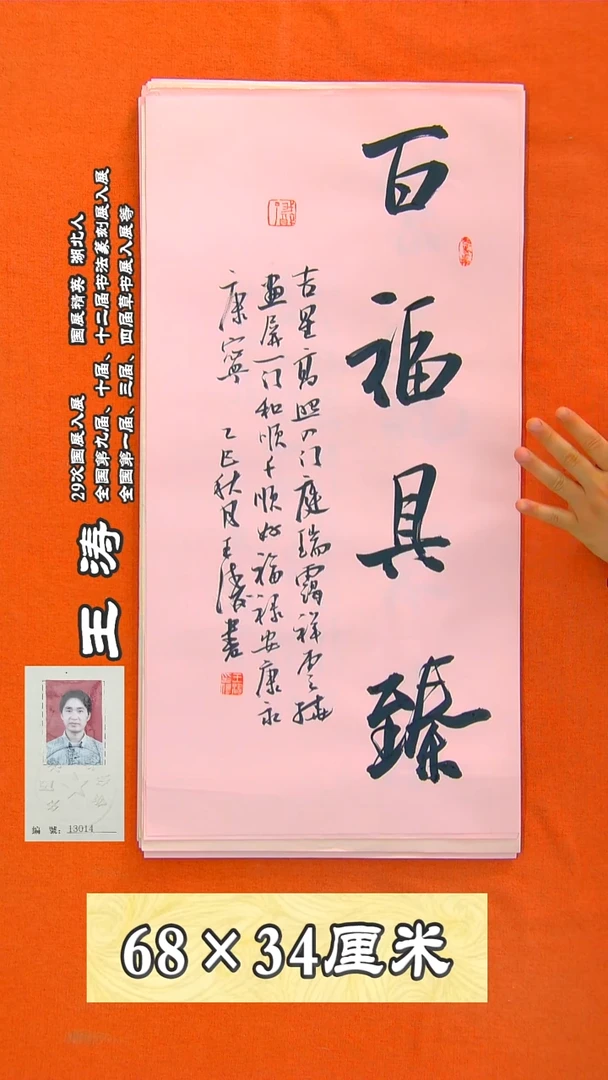 百福具臻
吉星高照门庭瑞霭祥云接
画屏一门和顺千顺好福禄安康永
康宁 乙巳秋月王涛书
29次国展入展 国展精英 湖北人
全国第九届、十届、十二届书法篆刻展入展
全国第一届、三届、四届草书展入展等
王涛
编號:13014
68×34厘米